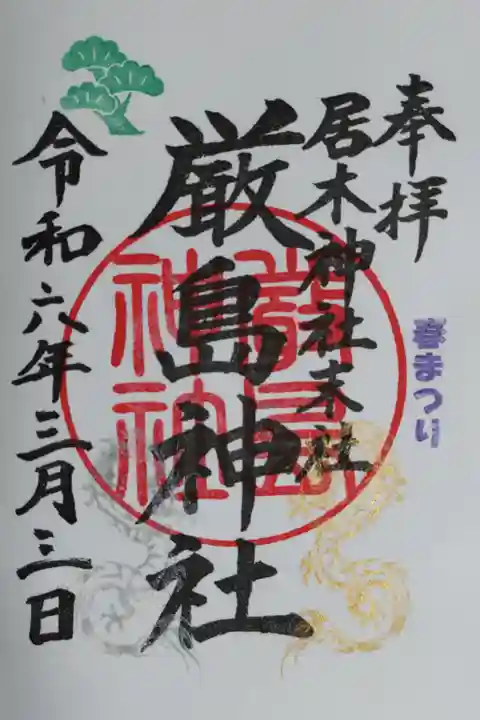 奉拝
春まつり
居木神社末社
厳島神社
厳島神社
令和六年三月三日